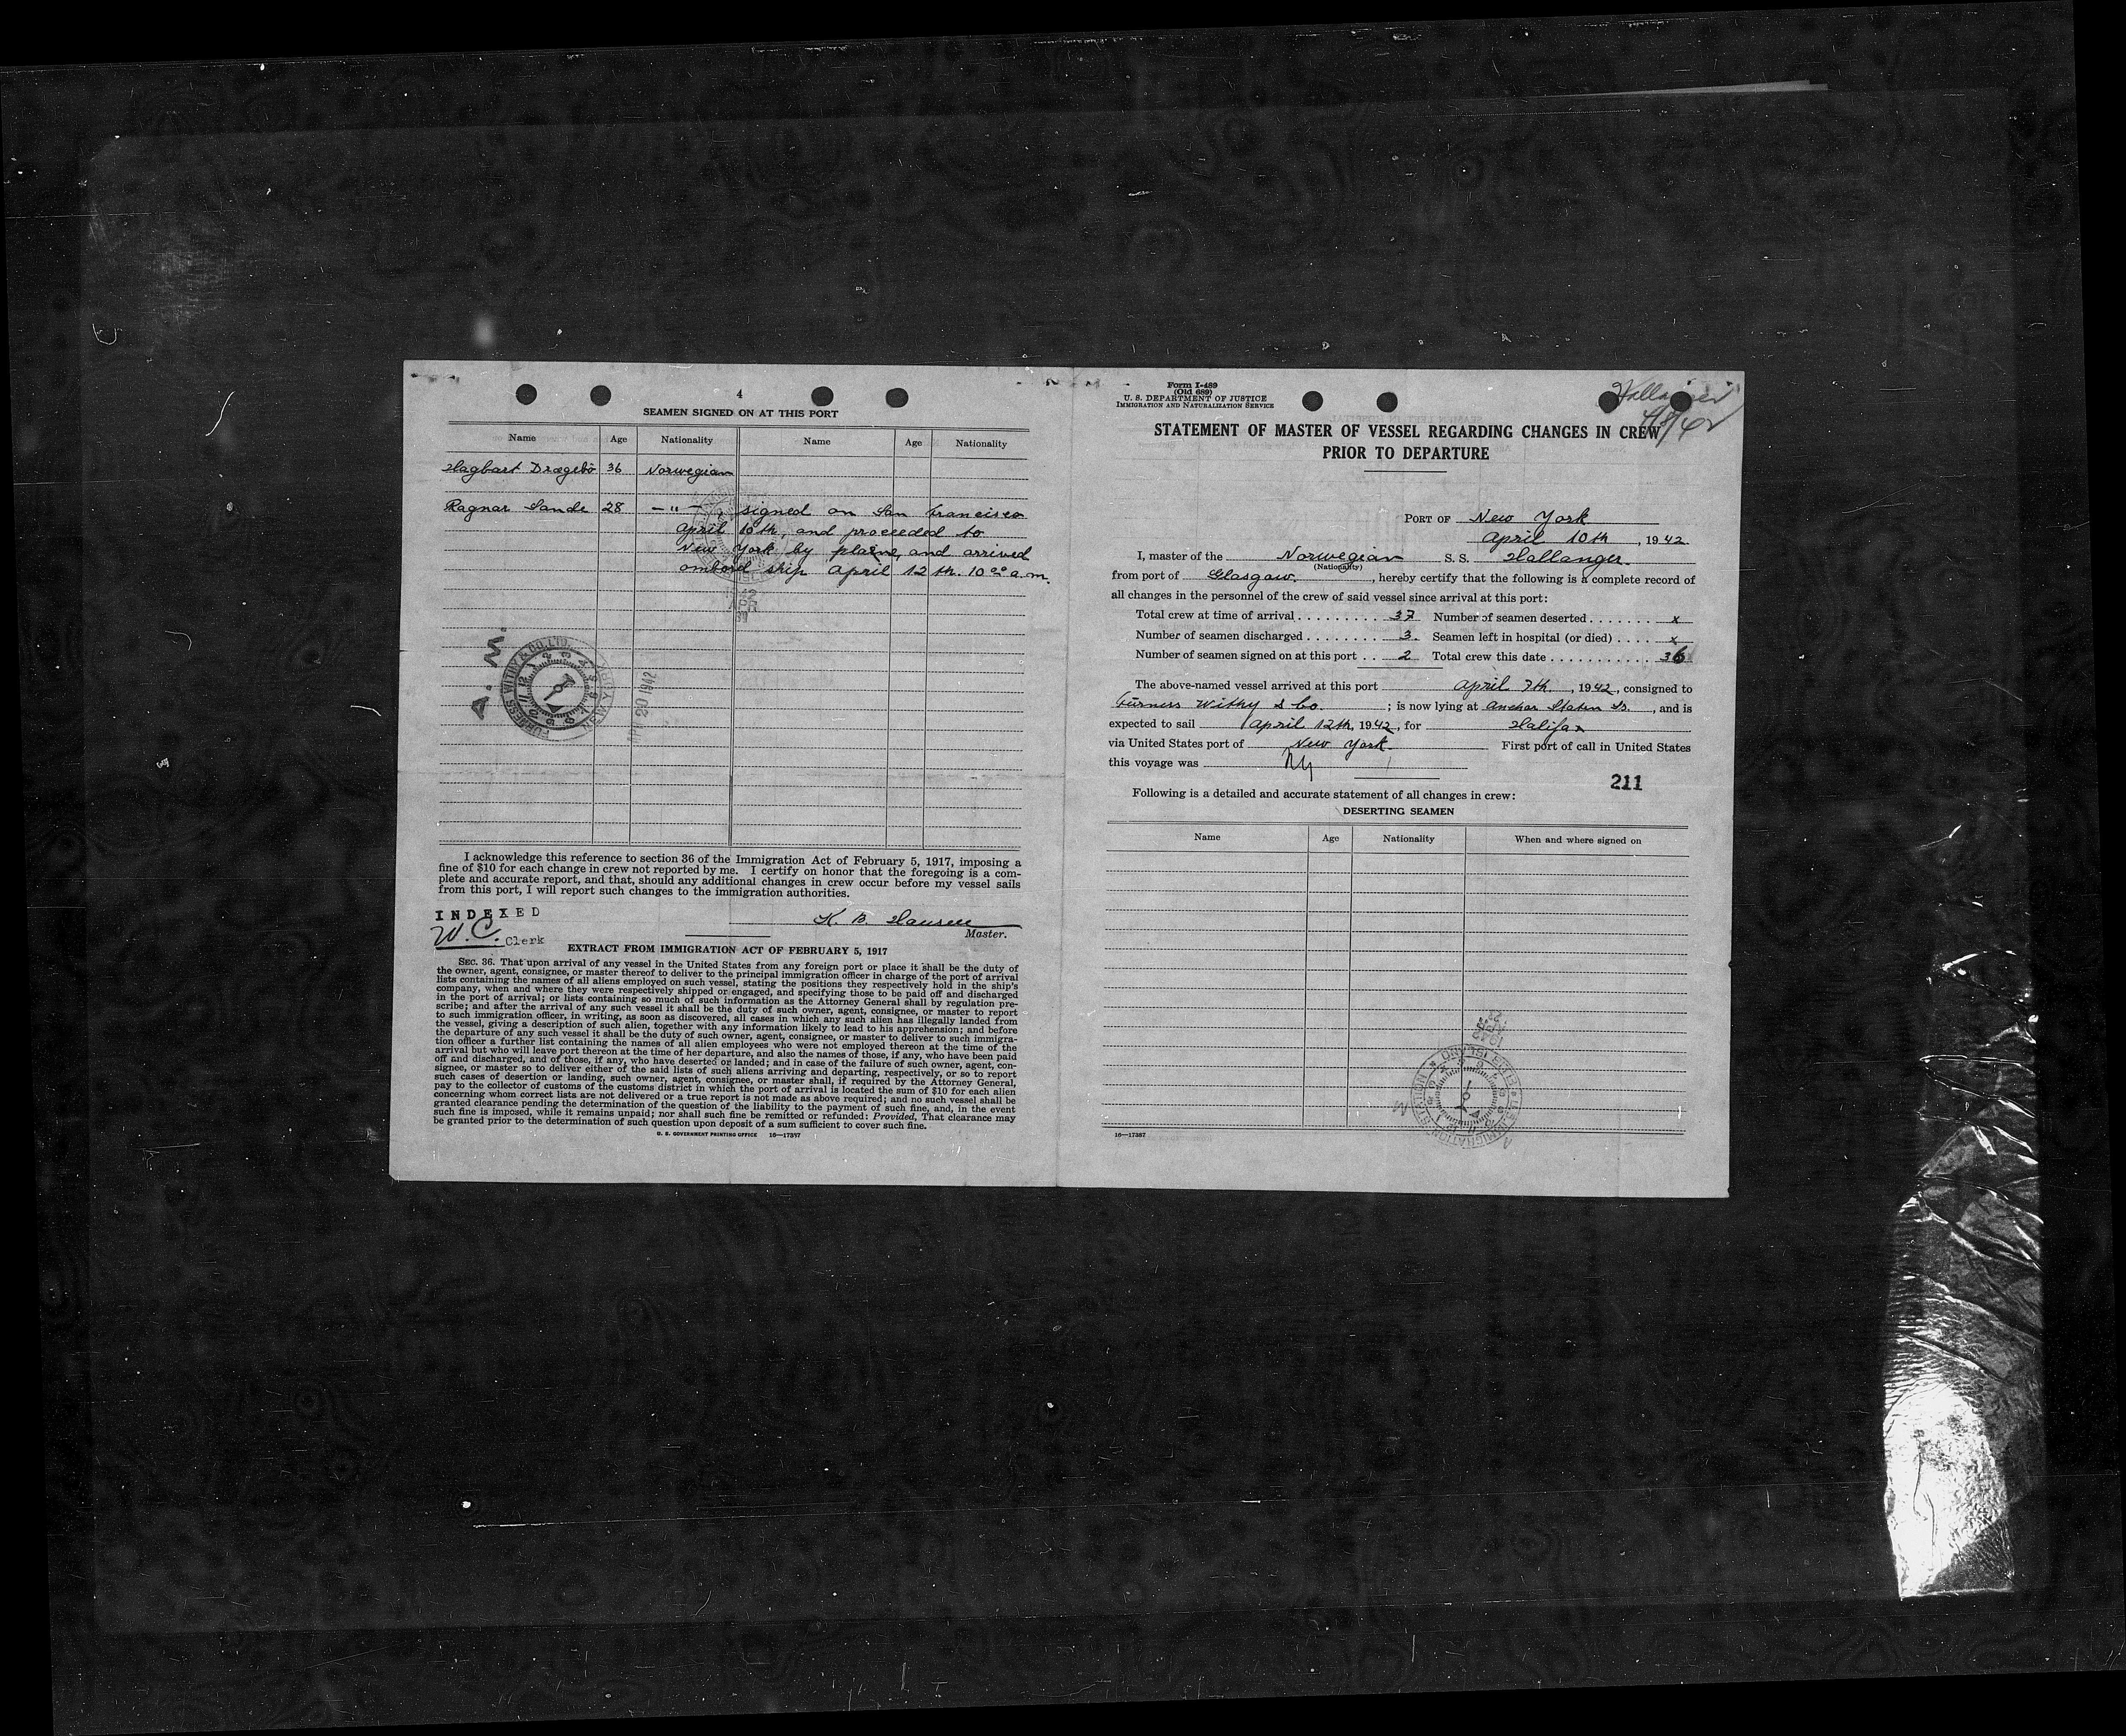 4
SEAMEN SIGNED ON AT THIS PORT
Name Age Nationality Name Age Nationality
Hagbart Drægebö 36 Norwegian
Ragnar Sande 28 -"- signed on San Francisco
April 10th, and proceeded to
New York by plaine, and arrived
ombord ship April 12th. 10 00 a.m.
A. M.
FURNESS WITHY & CO. LTD.
NEW YORK
APR 20 1942
I acknowledge this reference to section 36 of the Immigration Act of February 5, 1917, imposing a
fine of $10 for each change in crew not reported by me. I certify on honor that the foregoing is a com-
plete and accurate report, and that, should any additional changes in crew occur before my vessel sails
from this port, I will report such changes to the immigration authorities.
INDEXED
W.C. Clerk
K. B. Hansen
Master.
EXTRACT FROM IMMIGRATION ACT OF FEBRUARY 5, 1917
SEC. 36. That upon arrival of any vessel in the United States from any foreign port or place it shall be the duty of
the owner, agent, consignee, or master thereof to deliver to the principal immigration officer in charge of the port of arrival
lists containing the names of all aliens employed on such vessel, stating the positions they respectively hold in the ship's
company, when and where they were respectively shipped or engaged, and specifying those to be paid off and discharged
in the port of arrival; or lists containing so much of such information as the Attorney General shall by regulation pre-
scribe; and after the arrival of any such vessel it shall be the duty of such owner, agent, consignee, or master to report
to such immigration officer, in writing, as soon as discovered, all cases in which any such alien has illegally landed from
the vessel, giving a description of such alien, together with any information likely to lead to his apprehension; and before
the departure of any such vessel it shall be the duty of such owner, agent, consignee, or master to deliver to such immigra-
tion officer a further list containing the names of all alien employees who were not employed thereon at the time of the
arrival but who will leave port thereon at the time of her departure, and also the names of those, if any, who have been paid
off and discharged, and of those, if any, who have deserted or landed; and in case of the failure of such owner, agent, con-
signee, or master so to deliver either of the said lists of such aliens arriving and departing, respectively, or so to report
such cases of desertion or landing, such owner, agent, consignee, or master shall, if required by the Attorney General,
pay to the collector of customs of the customs district in which the port of arrival is located the sum of $10 for each alien
concerning whom correct lists are not delivered or a true report is not made as above required; and no such vessel shall be
granted clearance pending the determination of the question of the liability to the payment of such fine, and, in the event
such fine is imposed, while it remains unpaid; nor shall such fine be remitted or refunded: Provided, That clearance may
be granted prior to the determination of such question upon deposit of a sum sufficient to cover such fine.
U. S. GOVERNMENT PRINTING OFFICE 16—17387
Form I-489
(Old 689)
U. S. DEPARTMENT OF JUSTICE
IMMIGRATION AND NATURALIZATION SERVICE
Hallanger
4/8/42
STATEMENT OF MASTER OF VESSEL REGARDING CHANGES IN CREW
PRIOR TO DEPARTURE
PORT OF New York
April 10th, 1942
I, master of the Norwegian S. S. Hallanger
(Nationality)
from port of Glasgow, hereby certify that the following is a complete record of
all changes in the personnel of the crew of said vessel since arrival at this port:
Total crew at time of arrival 37 Number of seamen deserted x
Number of seamen discharged 3. Seamen left in hospital (or died) x
Number of seamen signed on at this port 2 Total crew this date 36
The above-named vessel arrived at this port April 7th, 1942, consigned to
Furness Withy & Co.; is now lying at Anchor Staten Is., and is
expected to sail April 12th, 1942, for Halifax
via United States port of New York. First port of call in United States
this voyage was NY
211
Following is a detailed and accurate statement of all changes in crew:
DESERTING SEAMEN
Name Age Nationality When and where signed on
16—17387